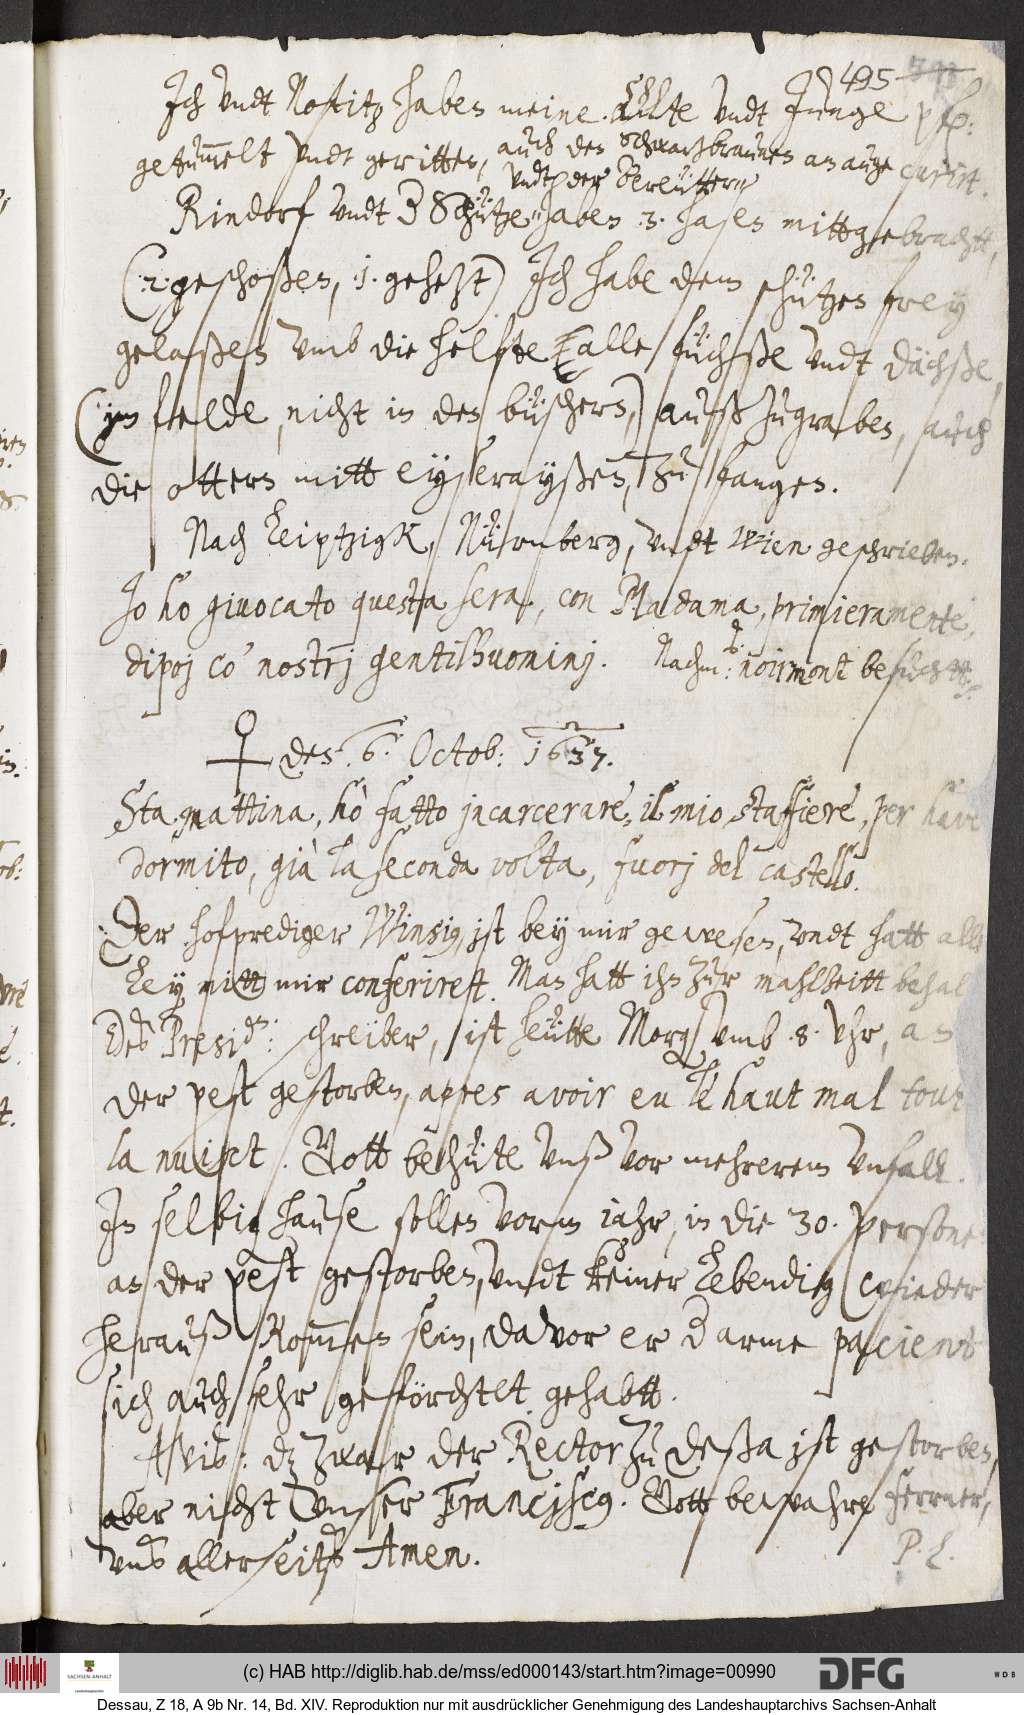 495
Ich undt Nostitz haben meine Allte undt Junge pf:
getum̅elt undt geritten, auch den Schwartzbraunen am auge curirt.
undt der Bereütter
Rindorf undt Schütze haben 3. hasen mittgebracht,
(2 geschoßen, 1. gehetzt) Ich habe dem schützen frey
gelaßen umb die helfte alle füchße undt dächße,
(im felde, nicht in den büschern,) außzugraben, auch
die ottern mitt eysern zu fangen.
Nach Leiptzigk, Nürnberg, undt Wien geschrieben.
Io ho giuocato questa sera, con Madama, primieramente,
dipoj co' nostrj gentilhuominj. Nachm: noirmont besucht
♀ den 6. Octob: 1637.
Sta mattina, hò fatto jncarcerare, il mio staffiere, per have
dormito, già la seconda volta, fuorj del castello.
Der hofprediger Winsig, ist bey mir gewesen, undt hatt aller
ley mitt mir conferireft. Man hatt ihn zur mahlzeitt behal
Des Presid: schreiber, ist heütte Morg umb 8. Uhr, an
der pest gestorben, apres avoir eu le haut mal tout
la nuict. Gott behüte unß vor mehrerem unfall.
In selbig hause sollen vorm jahr, in die 30. persone
an der pest gestorben, undt keiner lebendig wieder
herauß kom̅en sein, davor er arme pacient
sich auch sehr geförchtet gehabtt.
Avis: dz zwar der Rector zu Deßa ist gestorben,
aber nicht unser Francisco. Gott bewahre ferrner,
uns allerseits Amen.
P. L.
(c) HAB http://diglib.hab.de/mss/ed000143/start.htm?image=00990
SACHSEN-ANHALT
DFG
WDB
Dessau, Z 18, A 9b Nr. 14, Bd. XIV. Reproduktion nur mit ausdrücklicher Genehmigung des Landeshauptarchivs Sachsen-Anhalt